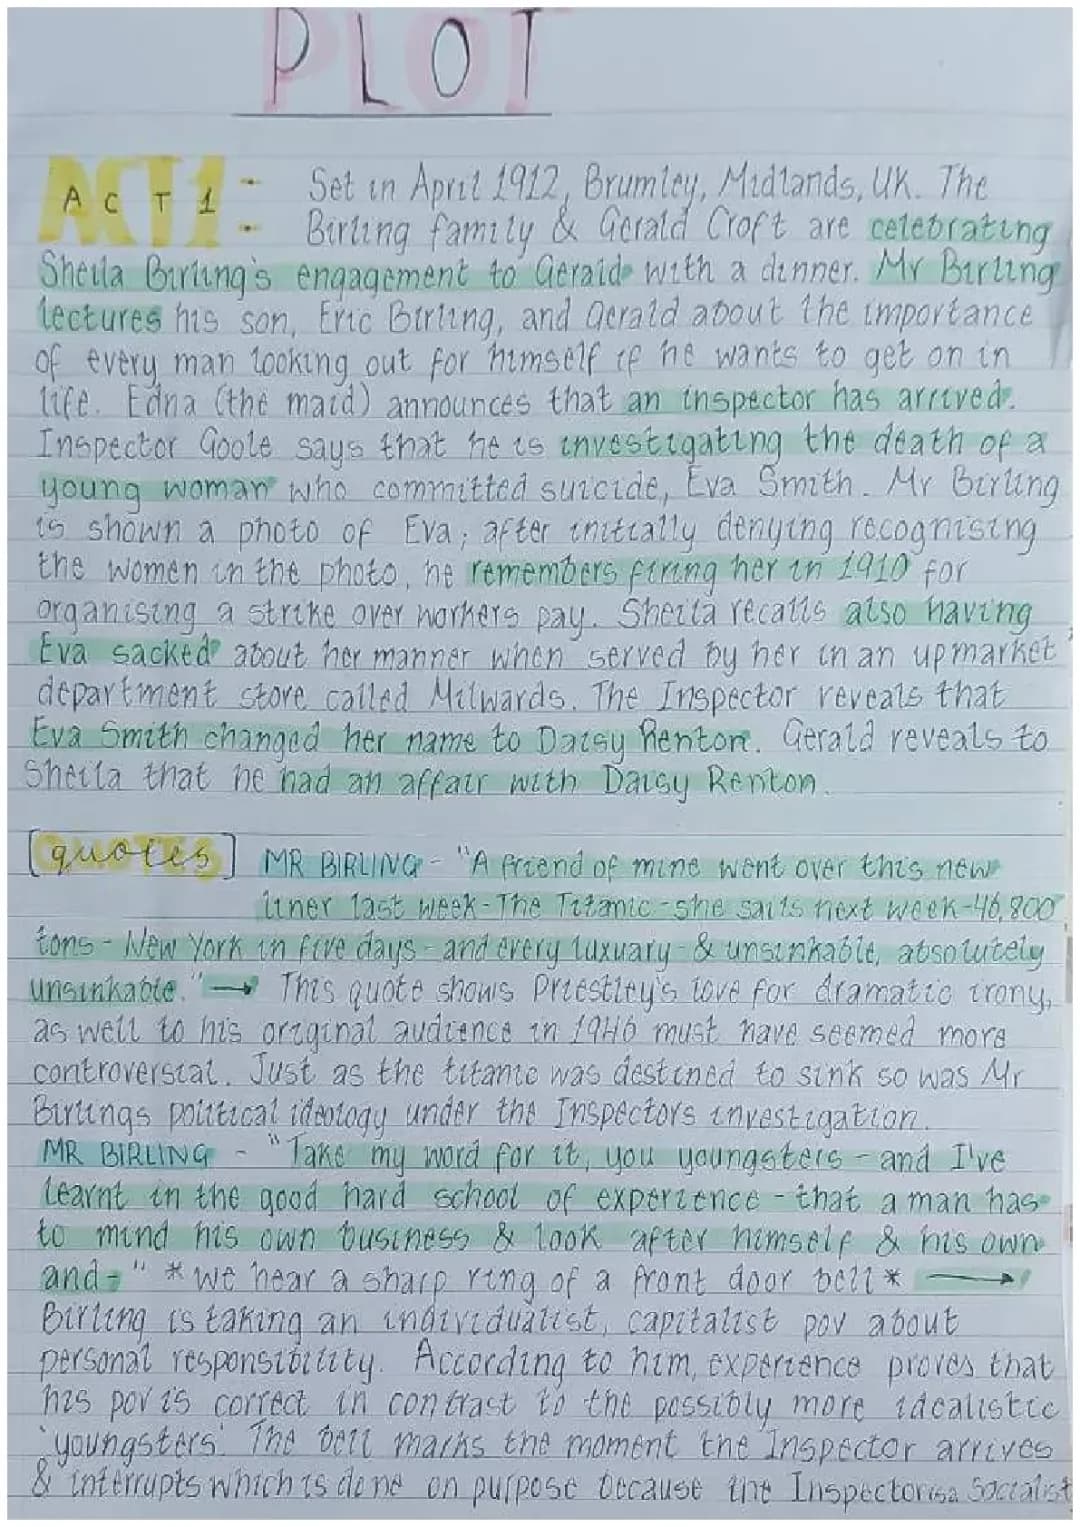 PLOT
ACT 1: Set in April 1912, Brumley, Midlands, UK. The
Birling family & Gerald Croft are celebrating
Sheila Birling's engagement to Gerald with a dinner. Mr Birling
lectures his son, Eric Birling, and Gerald about the importance
of every man looking out for himself if he wants to get on in
life. Edna (the maid) announces that an inspector has arrived.
Inspector Goole says that he is investigating the death of a
young woman who committed suicide, Eva Smith. Mr Birling
is shown a photo of Eva; after initially denying recognising
the women in the photo, he remembers firing her in 1910 for
organising a strike over workers pay. Sheila recalls also having
Eva sacked about her manner when served by her in an upmarket
department store called Milwards. The Inspector reveals that
Eva Smith changed her name to Daisy Renton. Gerald reveals to
Sheila that he had an affair with Daisy Renton.
[quotes] MR BIRLING - "A friend of mine went over this new
liner last week - The Titanic - she sails next week - 46,800
tons - New York in five days - and every luxuary - & unsinkable, absolutely
unsinkable." → This quote shows Priestley's love for dramatic irony,
as well to his original audience in 1946 must have seemed more
controversial. Just as the titanic was destined to sink so was Mr
Birlings political ideology under the Inspectors investigation.
MR BIRLING - "Take my word for it, you youngsters - and I've
learnt in the good hard school of experience - that a man has
to mind his own business & look after himself & his own
and - " * we hear a sharp ring of a front door bell * →
Birling is taking an individualist, capitalist pov about
personal responsibility. According to him, experience proves that
his pov is correct in contrast to the possibly more idealistic
'youngsters'. The bell marks the moment the Inspector arrives
& interrupts which is done on purpose because the Inspector is a Socialist